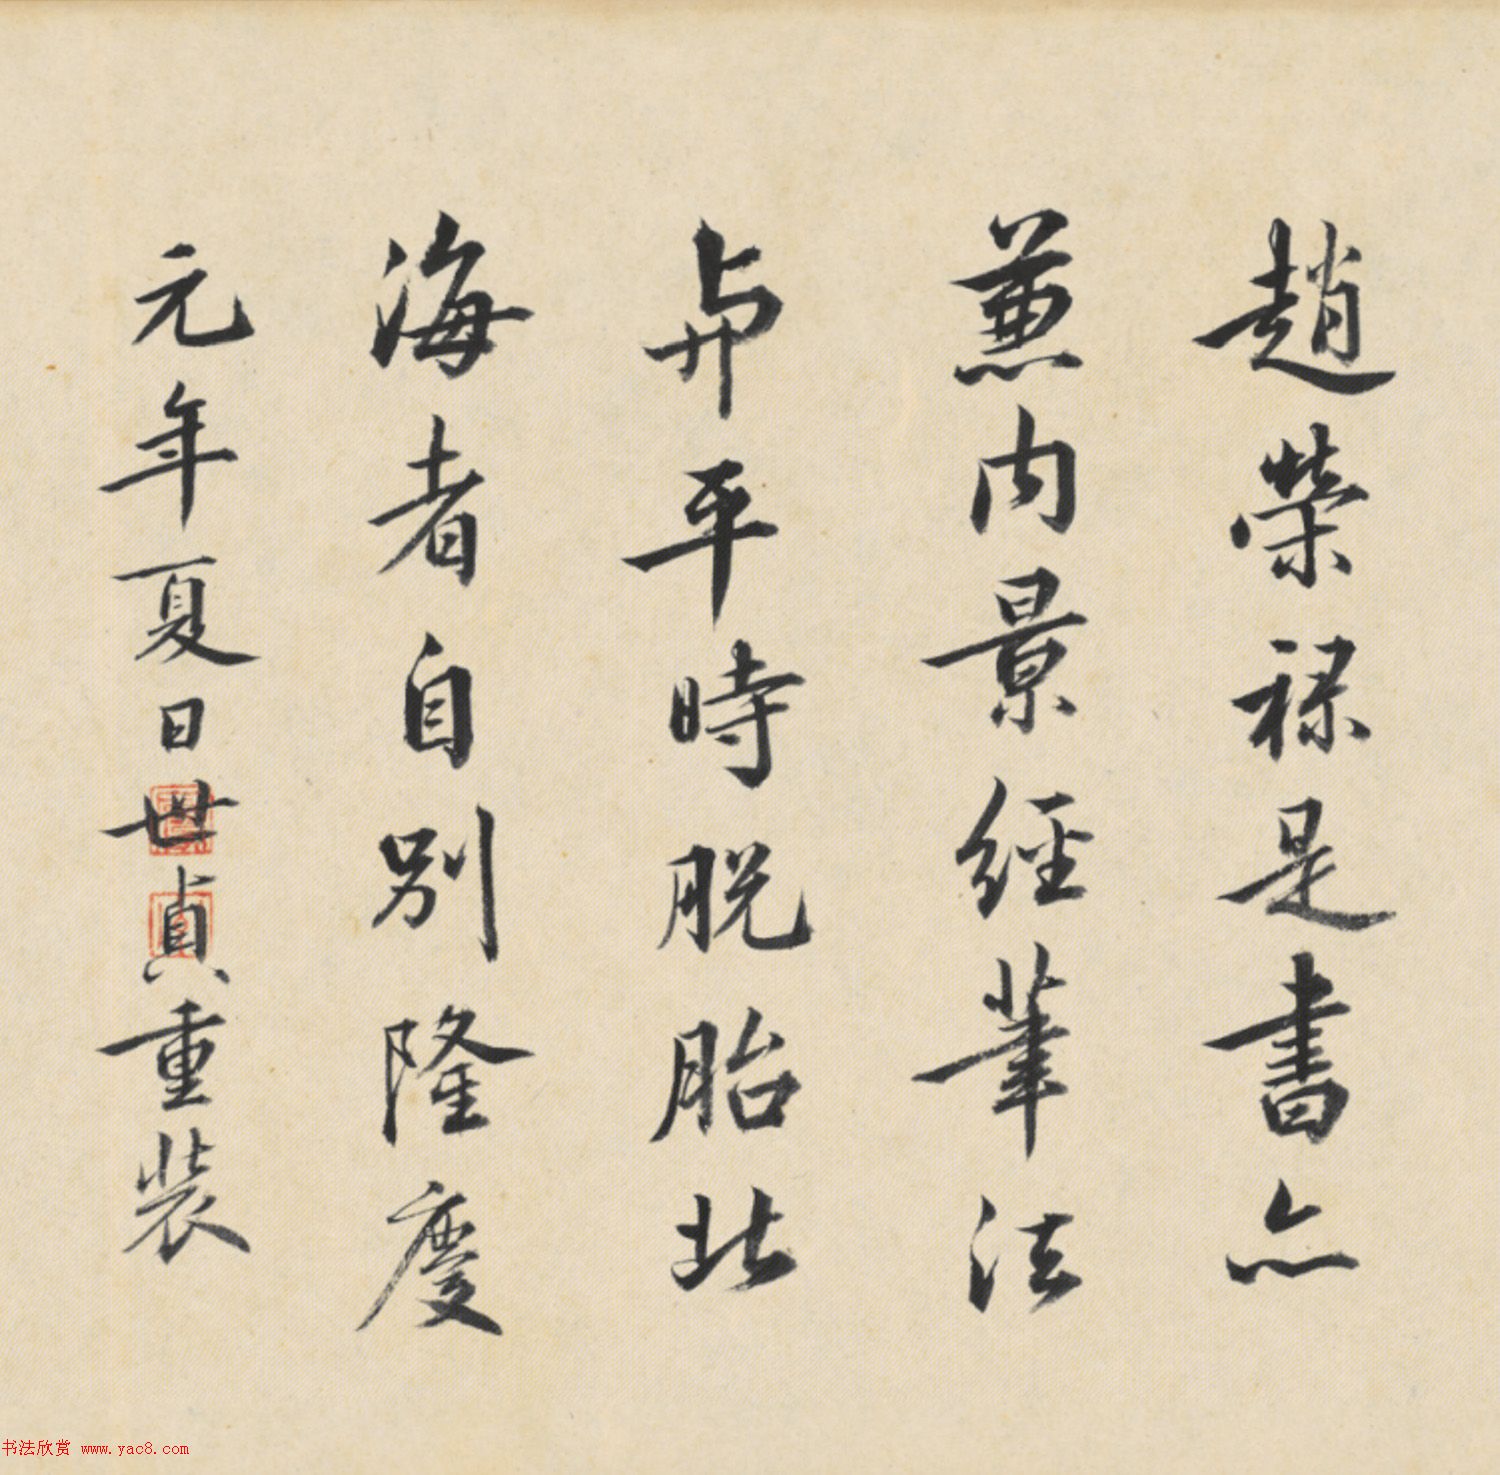 趙榮祿是書亦
兼內景經筆法
與平時脫胎北
海者自別隆慶
元年夏日世貞重裝
书法欣赏 www.yac8.com